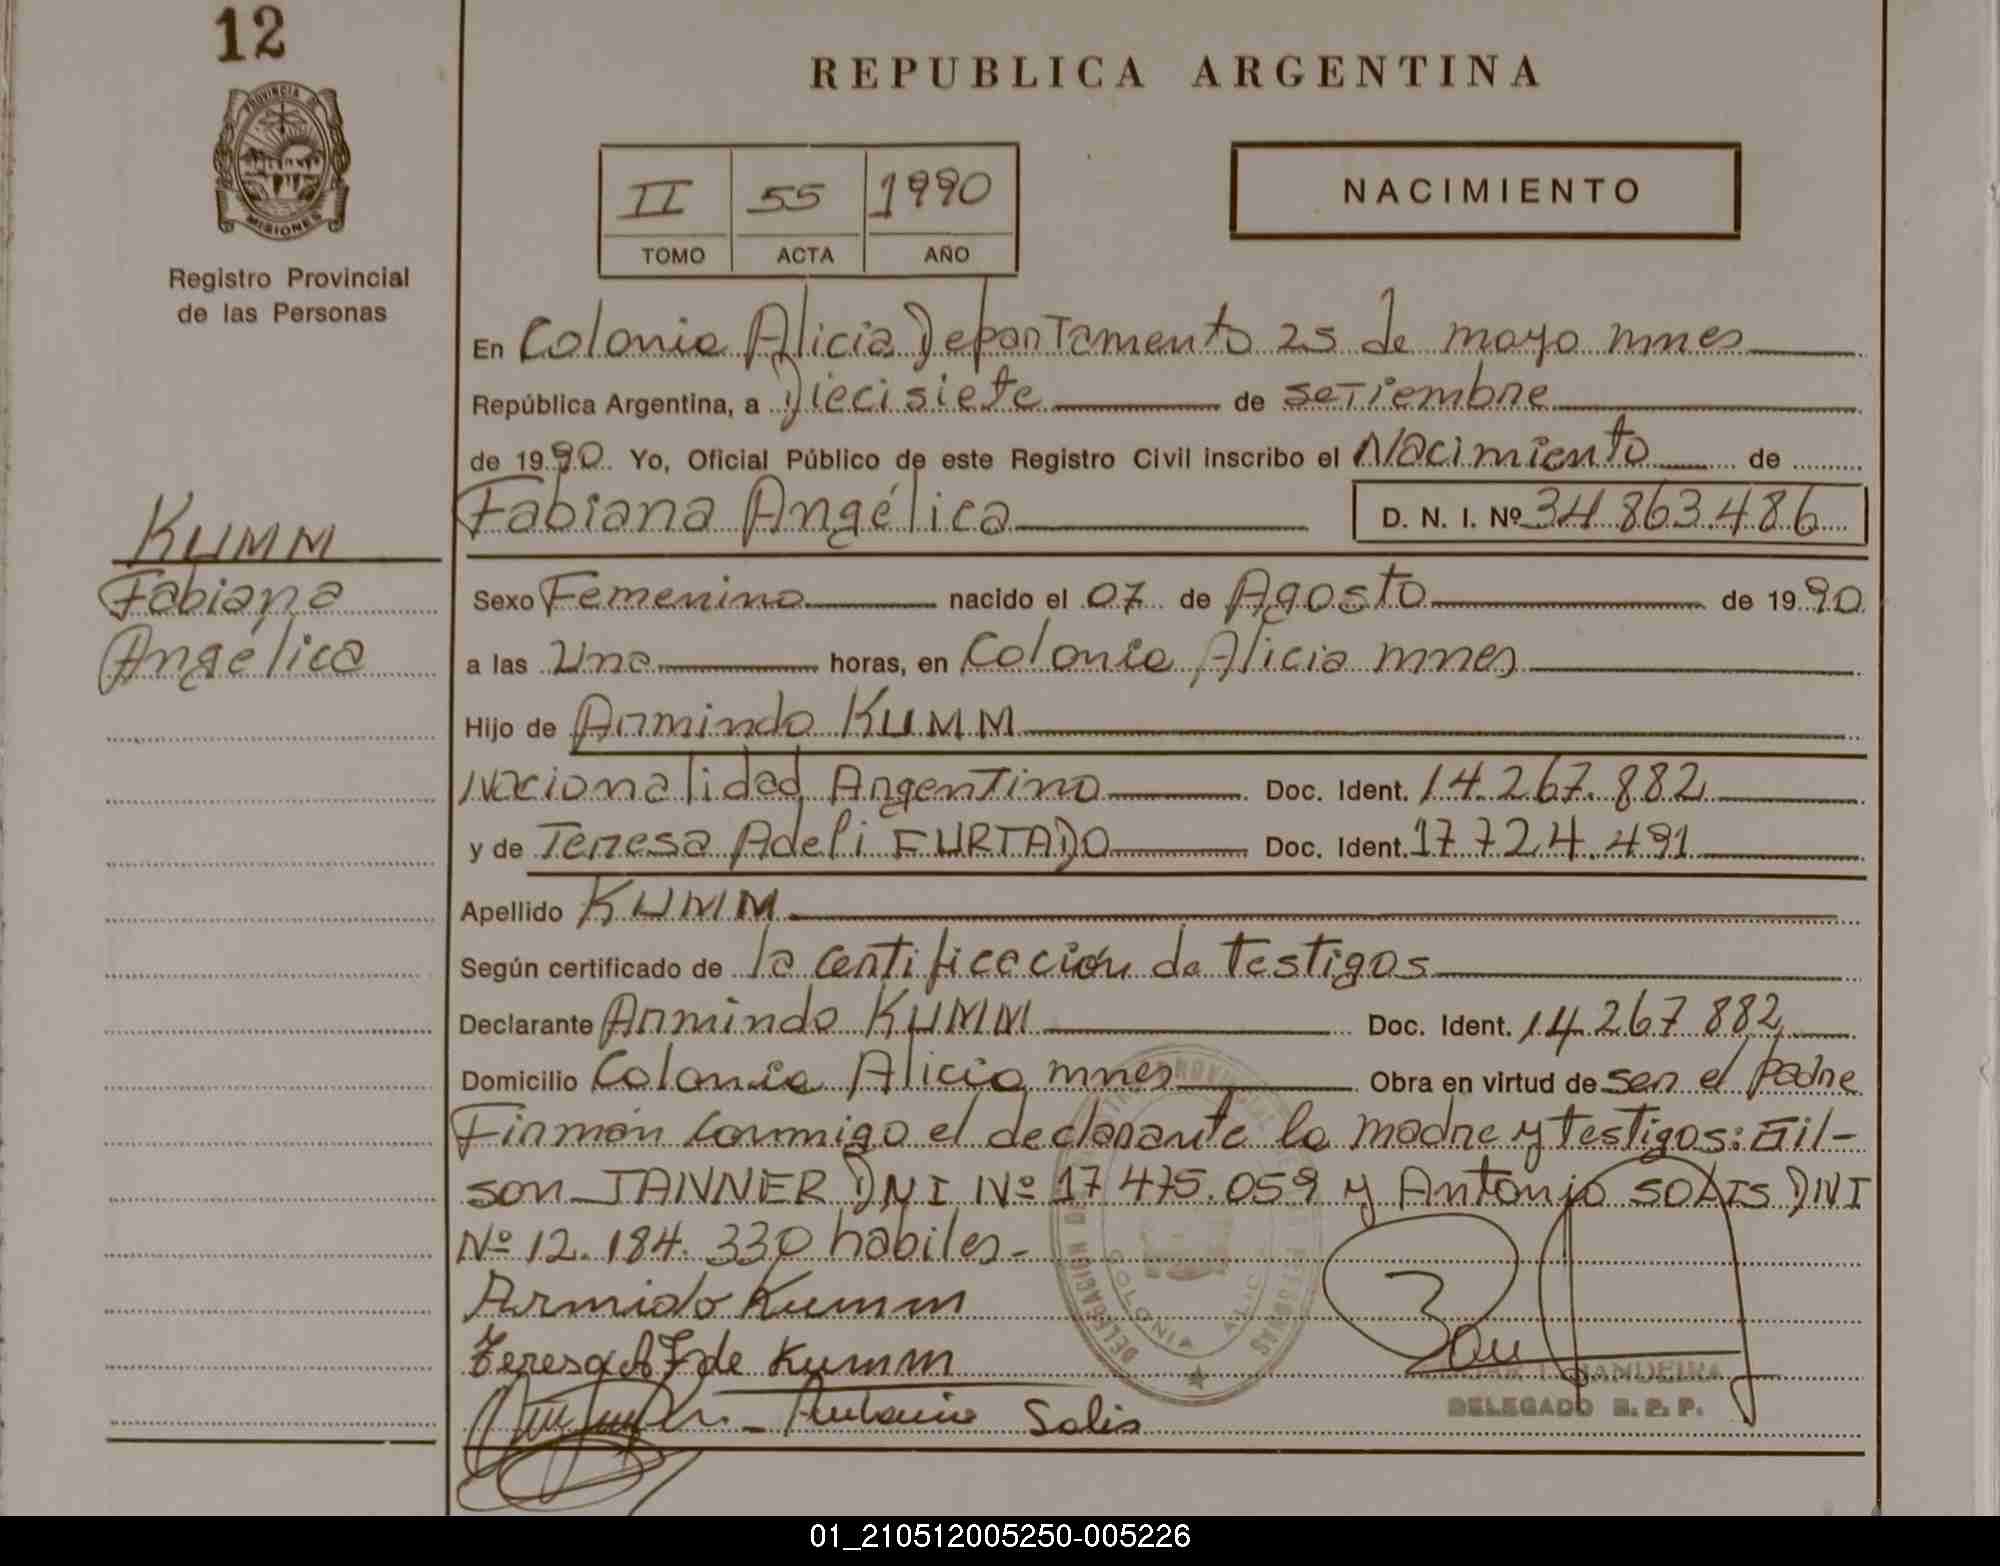 12
PROVINCIA DE
MISIONES
Registro Provincial
de las Personas
REPUBLICA ARGENTINA
II 55 1990
TOMO ACTA AÑO
NACIMIENTO
En Colonia Alicia Departamento 25 de mayo mnes
República Argentina, a Diecisiete de setiembre
de 1990. Yo, Oficial Público de este Registro Civil inscribo el Nacimiento de
Fabiana Angélica D. N. I. Nº 34.863.486
KUMM
Fabiana
Angélica
Sexo Femenino nacido el 07 de Agosto de 1990
a las Una horas, en Colonia Alicia mnes
Hijo de Armindo KUMM
Nacionalidad Argentino Doc. Ident. 14.267.882
y de Teresa Adeli FURTADO Doc. Ident. 17724.491
Apellido KUMM
Según certificado de la certificación de testigos
Declarante Armindo KUMM Doc. Ident. 14.267.882
Domicilio Colonia Alicia mnes Obra en virtud de ser el padre
Firman conmigo el declarante la madre y testigos: Gil-
son TANNER DNI Nº 17 475.059 y Antonio SOLIS DNI
Nº 12.184.330 habiles-
Armido Kumm
Teresa A F de Kumm
Antonio Solis
DELEGACION
COLONIA ALICIA
BANDEIRA
DELEGADO R. P. P.
01_210512005250-005226